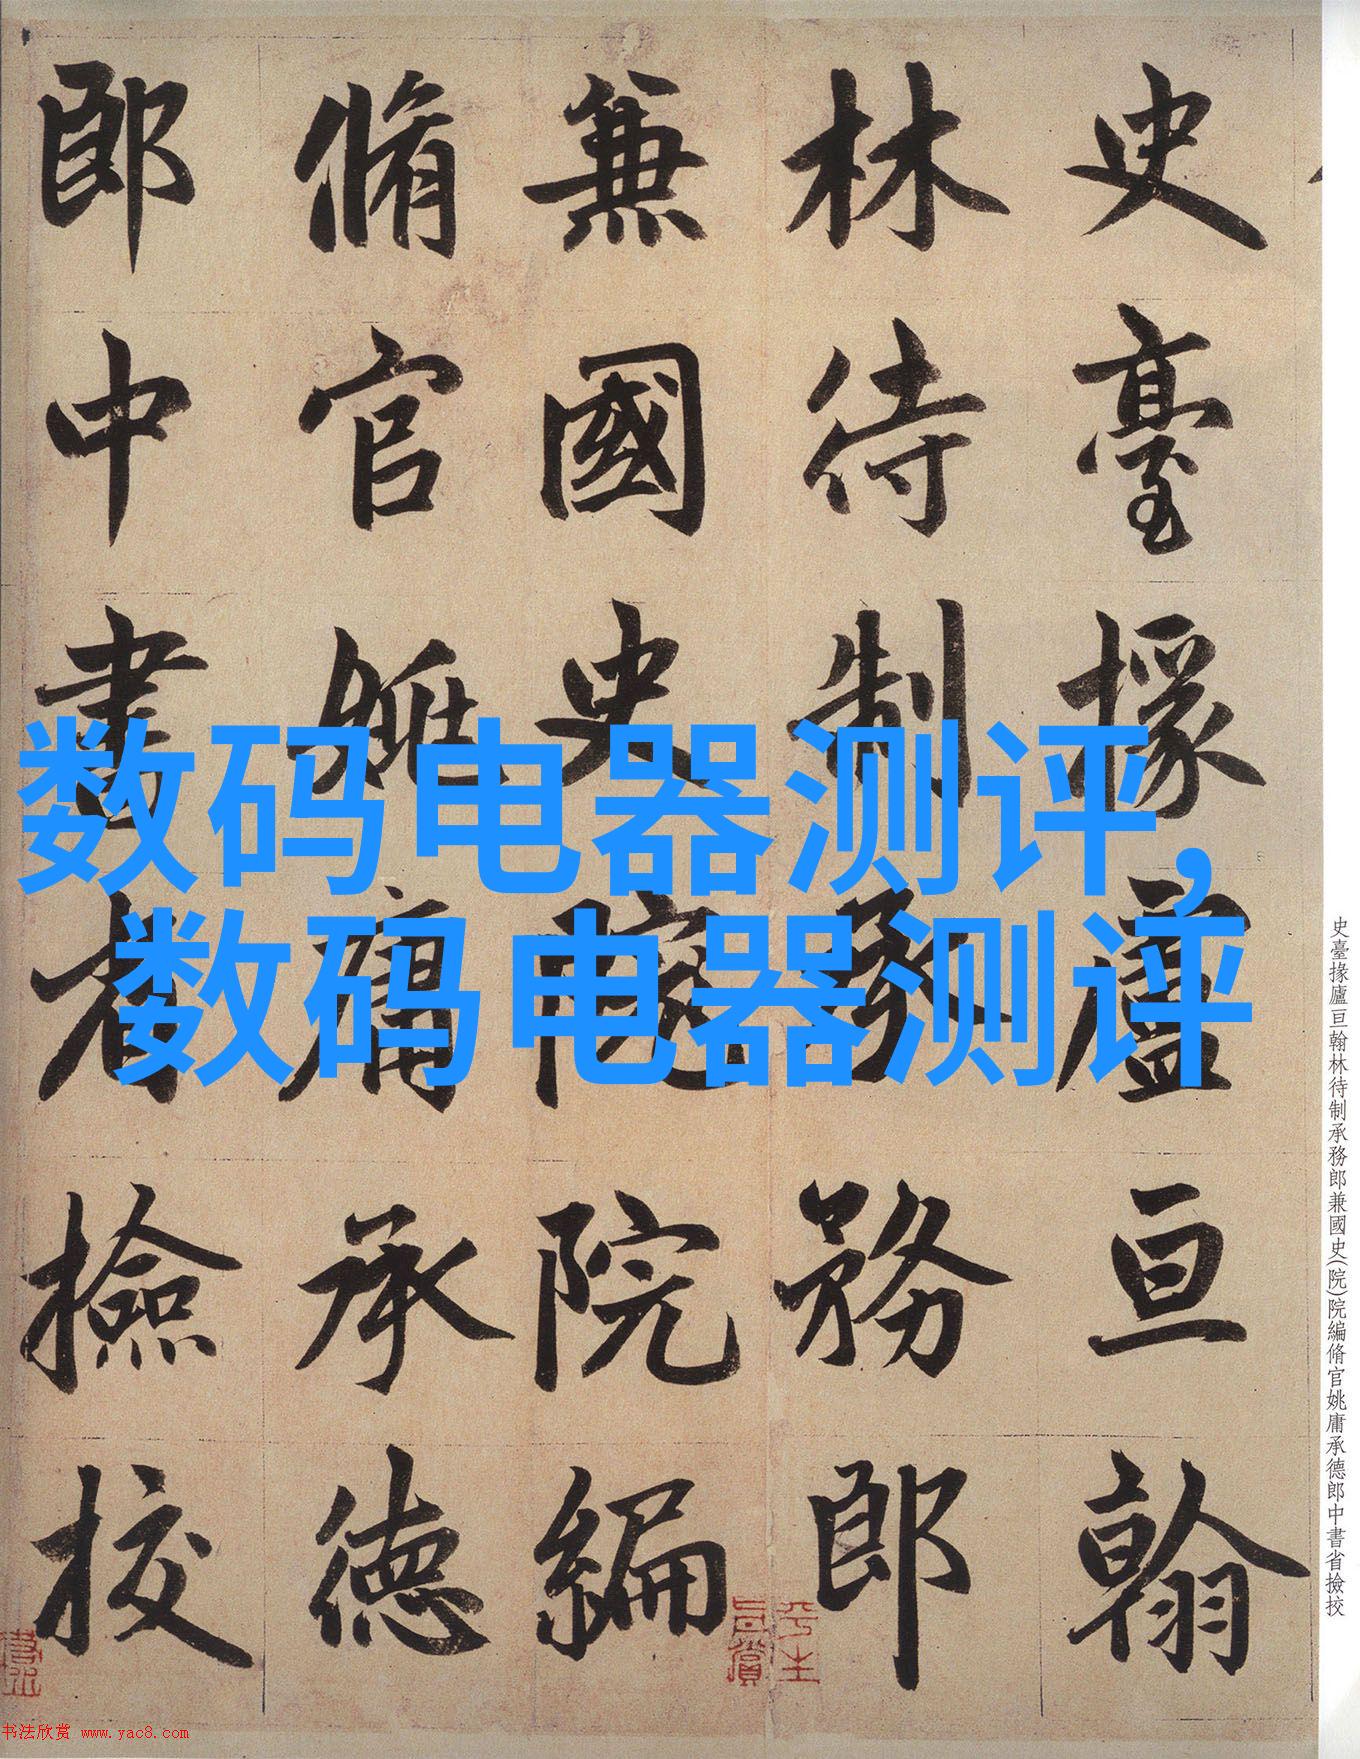 史臺掾廬亘翰
林待制承務郎
兼國史院院編
脩官姚庸承德
郎中書省撿挍
数码电器测评,
数码电器测评
史臺掾廬亘翰林待制承務郎兼國史(院)院編脩官姚庸承德郎中書省撿挍
书法欣赏 www.yac8.com